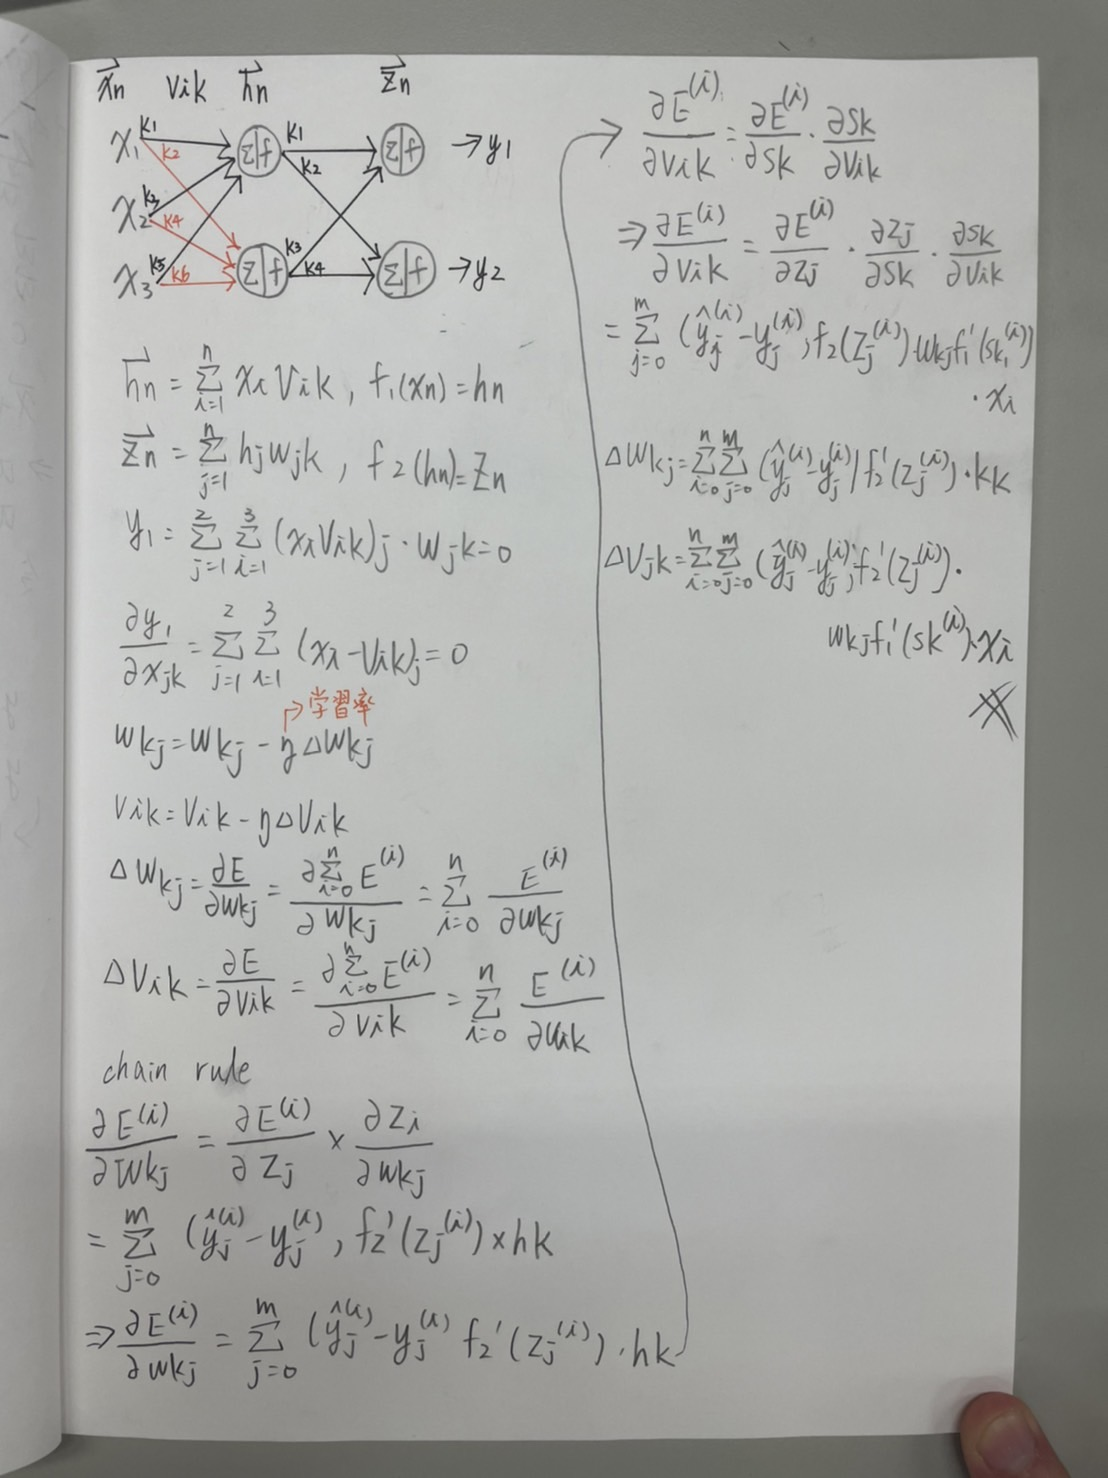 x⃗n Vik h⃗n z⃗n
x1 k1 k2 Σ|f k1 k2 Σ|f →y1
x2 k3 k4
x3 k5 k6 Σ|f k3 k4 Σ|f →y2
h⃗n = Σ_{i=1}^{n} xi Vik , f1(xn) = hn
z⃗n = Σ_{j=1}^{n} hj wjk , f2(hn) = Zn
y1 = Σ_{j=1}^{2} Σ_{i=1}^{3} (xi Vik)j · wjk = 0
∂y1/∂xjk = Σ_{j=1}^{2} Σ_{i=1}^{3} (xi - Vik)j = 0
→学習率
wkj = wkj - η △wkj
Vik = Vik - η △Vik
△wkj = ∂E/∂wkj = ∂Σ_{i=0}^{n} E^(i)/∂wkj = Σ_{i=0}^{n} E^(i)/∂wkj
△Vik = ∂E/∂Vik = ∂Σ_{i=0}^{n} E^(i)/∂Vik = Σ_{i=0}^{n} E^(i)/∂Vik
chain rule
∂E^(i)/∂wkj = ∂E^(i)/∂Zj × ∂Zi/∂wkj
= Σ_{j=0}^{m} (ŷj^(i) - yj^(i), f2'(Zj^(i)) × hk
⇒ ∂E^(i)/∂wkj = Σ_{j=0}^{m} (ŷj^(i) - yj^(i) f2'(Zj^(i)) · hk
→ ∂E^(i)/∂Vik = ∂E^(i)/∂Sk · ∂Sk/∂Vik
⇒ ∂E^(i)/∂Vik = ∂E^(i)/∂Zj · ∂Zj/∂Sk · ∂Sk/∂Vik
= Σ_{j=0}^{m} (ŷj^(i) - yj^(i), f2(Zj^(i)) · wkj f1'(sk^(i))
· xi
△wkj = Σ_{i=0}^{n} Σ_{j=0}^{m} (ŷj^(i) - yj^(i) | f2'(Zj^(i)) · kk
△Vjk = Σ_{i=0}^{n} Σ_{j=0}^{m} (ŷj^(i) - yj^(i), f2'(Zj^(i)) ·
wkj f1'(sk^(i)) · xi